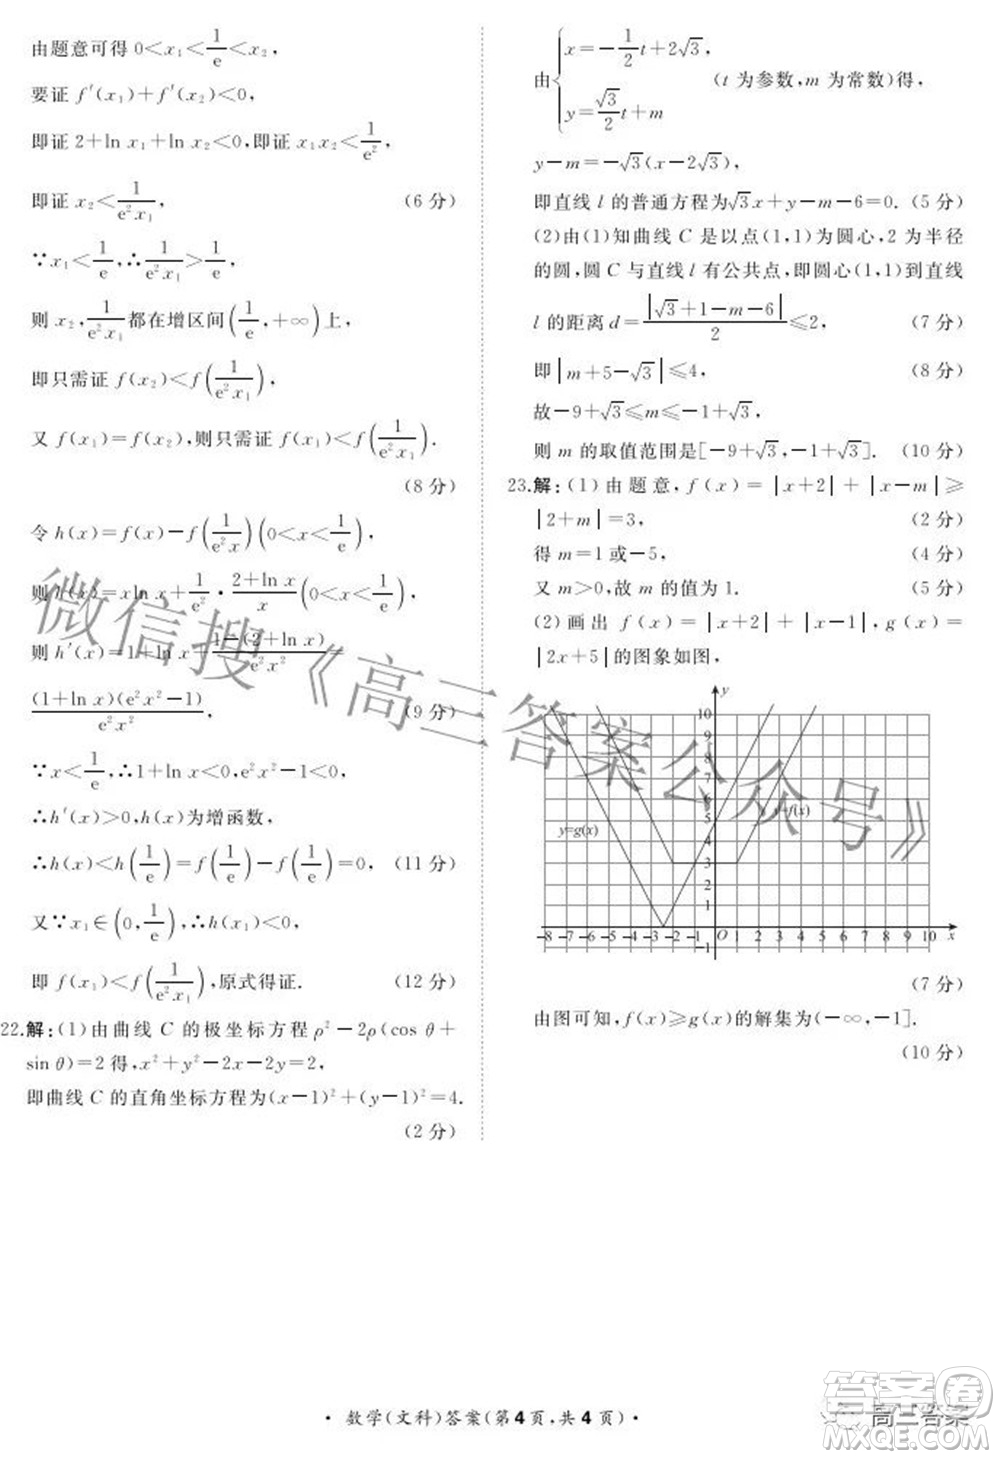 由题意可得 0<x₁<1/e<x₂,
要证 f′(x₁)+f′(x₂)<0,
即证 2+ln x₁+ln x₂<0,即证 x₁x₂<1/e²,
即证 x₂<1/(e²x₁), (6 分)
∵x₁<1/e,∴1/(e²x₁)>1/e,
则 x₂,1/(e²x₁)都在增区间(1/e,+∞)上,
即只需证 f(x₂)<f(1/(e²x₁)),
又 f(x₁)=f(x₂),则只需证 f(x₁)<f(1/(e²x₁)).
(8 分)
令 h(x)=f(x)−f(1/(e²x))(0<x<1/e),
则 h(x)=xln x+1/e²·(2+ln x)/x(0<x<1/e),
则 h′(x)=1+ln x+(1−(2+ln x))/(e²x²)=
(1+ln x)(e²x²−1)/(e²x²), (9 分)
∵x<1/e,∴1+ln x<0,e²x²−1<0,
∴h′(x)>0,h(x)为增函数,
∴h(x)<h(1/e)=f(1/e)−f(1/e)=0, (11 分)
又∵x₁∈(0,1/e),∴h(x₁)<0,
即 f(x₁)<f(1/(e²x₁)),原式得证. (12 分)
22.解:(1)由曲线 C 的极坐标方程 ρ²−2ρ(cos θ+
sin θ)=2 得,x²+y²−2x−2y=2,
即曲线 C 的直角坐标方程为(x−1)²+(y−1)²=4.
(2 分)
由{x=−1/2t+2√3,
y=√3/2t+m (t 为参数,m 为常数)得,
y−m=−√3(x−2√3),
即直线 l 的普通方程为√3x+y−m−6=0. (5 分)
(2)由(1)知曲线 C 是以点(1,1)为圆心,2 为半径
的圆,圆 C 与直线 l 有公共点,即圆心(1,1)到直线
l 的距离 d=|√3+1−m−6|/2≤2, (7 分)
即|m+5−√3|≤4, (8 分)
故−9+√3≤m≤−1+√3,
则 m 的取值范围是[−9+√3,−1+√3]. (10 分)
23.解:(1)由题意,f(x)=|x+2|+|x−m|≥
|2+m|=3, (2 分)
得 m=1 或−5, (4 分)
又 m>0,故 m 的值为 1. (5 分)
(2)画出 f(x)=|x+2|+|x−1|,g(x)=
|2x+5|的图象如图,
y
10
9
8
7
6
5
4
3
2
1
y=f(x)
y=g(x)
-8 -7 -6 -5 -4 -3 -2 -1 O 1 2 3 4 5 6 7 8 9 10 x
-1
(7 分)
由图可知,f(x)≥g(x)的解集为(−∞,−1].
(10 分)
微信搜《高三答案公众号》
·数学(文科)答案(第4页,共4页)·
高三答案
答案圈
MXQE.COM